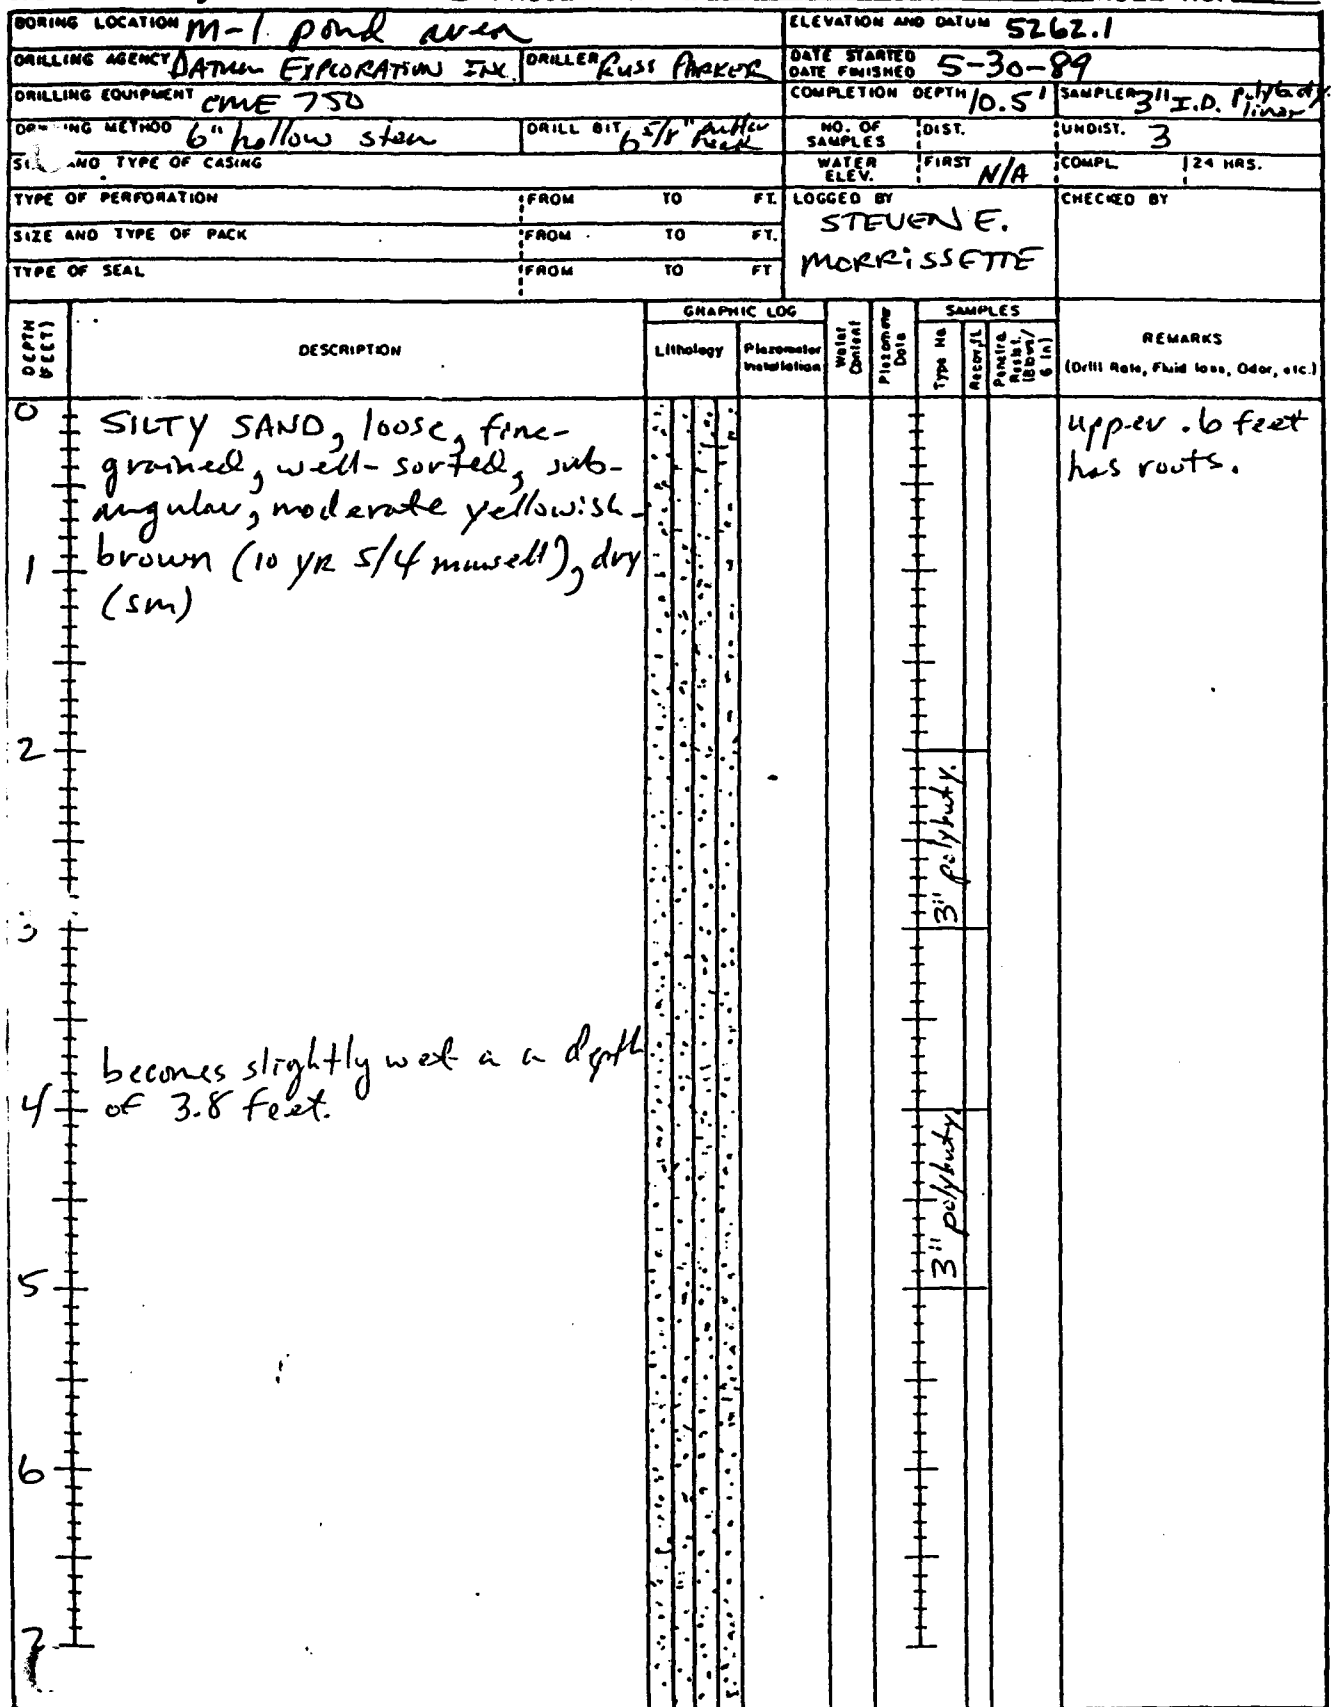 BORING LOCATION M-1 pond area
ELEVATION AND DATUM 5262.1
DRILLING AGENCY DATUM EXPLORATION INC.
DRILLER RUSS PARKER
DATE STARTED
DATE FINISHED 5-30-89
DRILLING EQUIPMENT CME 750
COMPLETION DEPTH 10.5'
SAMPLER 3" I.D. liner
METHOD 6" hollow stem
DRILL BIT 6 5/8" cutter head
NO. OF SAMPLES
DIST.
UNDIST. 3
AND TYPE OF CASING
WATER ELEV.
FIRST N/A
COMPL.
24 HRS.
TYPE OF PERFORATION
FROM TO FT.
LOGGED BY
STEVEN E.
MORRISSETTE
CHECKED BY
SIZE AND TYPE OF PACK
FROM TO FT.
TYPE OF SEAL
FROM TO FT
DEPTH
(FEET)
DESCRIPTION
GRAPHIC LOG
Lithology
Piezometer
Installation
Water
Content
Piezometer
Data
SAMPLES
Type No
Recov, ft.
Penetra.
Resist.
(Blows/
6 in)
REMARKS
(Drill Rate, Fluid loss, Odor, etc.)
0
SILTY SAND, loose, fine-
grained, well-sorted, sub-
angular, moderate yellowish-
brown (10 YR 5/4 munsell), dry
(sm)
upper .6 feet
has roots.
1
2
3" polybuty.
3
becomes slightly wet a a depth
of 3.8 feet.
4
3" polybuty
5
6
7